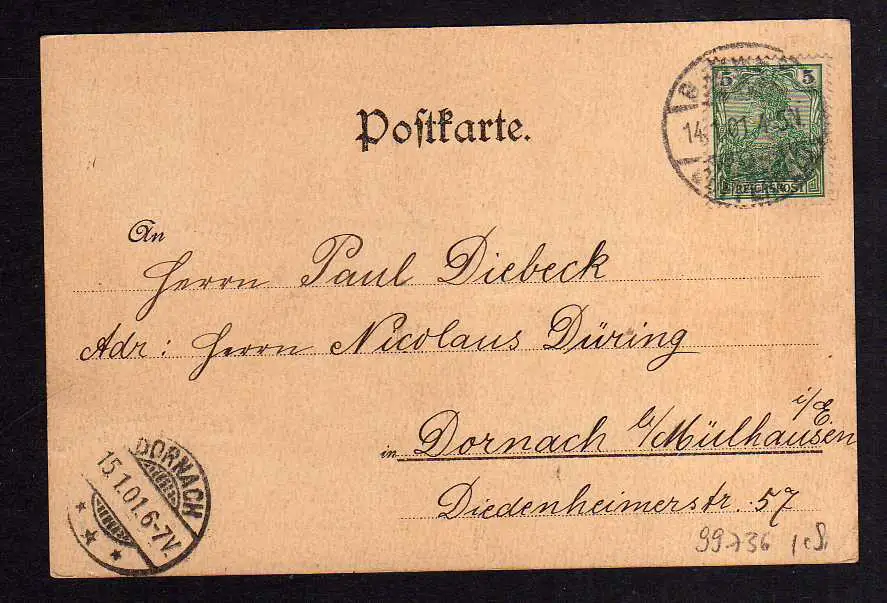 Postkarte.
5 5
14.1.01.4-5N
REICHSPOST
An
Herrn Paul Diebeck
Adr: Herrn Nicolaus Düring
in Dornach b/Mülhausen i/E
Diedenheimerstr. 57
DORNACH
15.1.01.6-7V.
99736